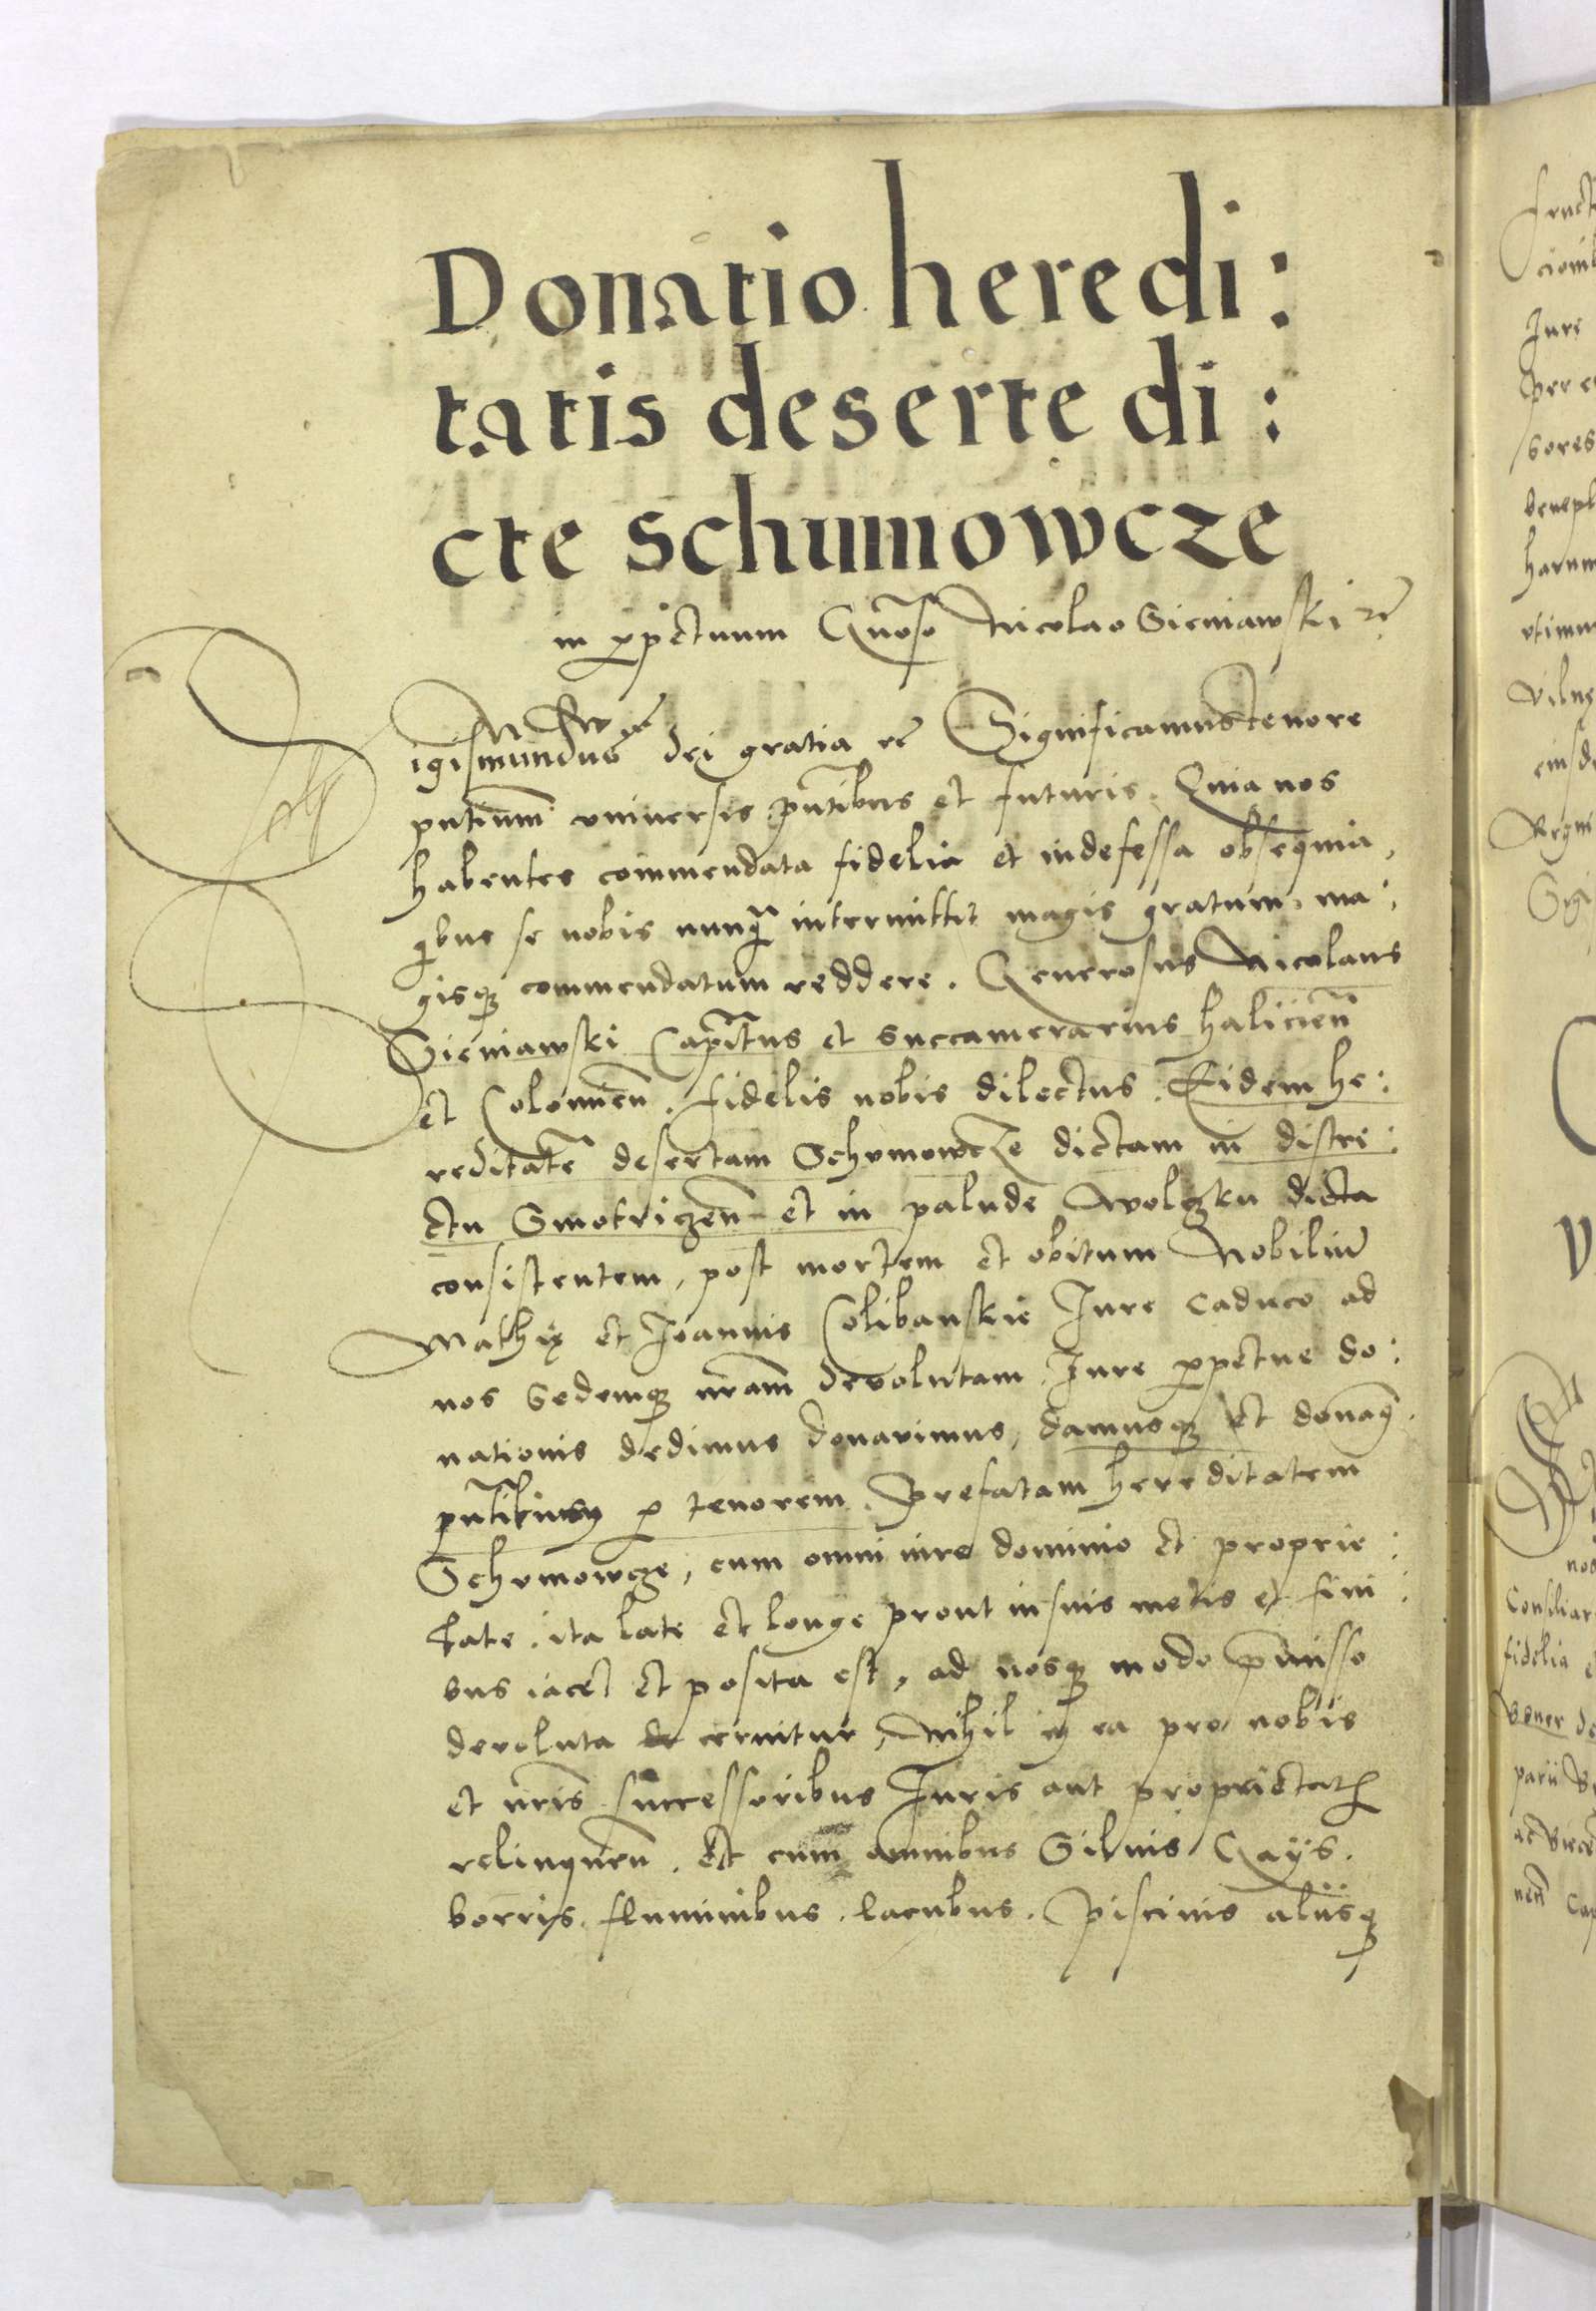 Donatio heredi:
tatis deserte di:
cte schumowcze
in ꝑpetuum Gn̄oso Nicolao Sieniawski ꝛc̄
Sigismundus dei gratia ꝛc̄ Significamus tenore
pn̄tium vniuersis pn̄tibus et futuris. Quia nos
habentes commendata fidelia et indefessa obsequia,
qibus se nobis nunq̄ intermittit magis gratum, ma:
gisqȝ commendatum reddere. Generosus Nicolaus
Sieniawski Capit̄us et succamerarius halicien̄
et Colomien̄. fidelis nobis dilectus. Eidem he:
reditatē desertam Schumowcze dictam in distri:
ctu Smotriczen̄ et in palude Wolczku dicta
consistentem, post mortem et obitum Nobiliū
Mathię et Joannis Colibanskie Jure caduco ad
nos sedemqȝ nr̄am deuolutam. Jure ꝑpetue do:
nationis dedimus donauimus, damusqȝ et donamꝰ
pn̄tibusqȝ ꝑ tenorem. Prefatam hereditatem
Schumowcze, cum omni iure dominio et proprie:
tate. ita late et longe prout in suis metis et fini:
bus iacet et posita est, ad nosqȝ modo p̄misso
deuoluta cernitur, Nihil in ea pro nobis
et nr̄is successoribus Juris aut proprietatis
relinquen̄. Et cum omnibus Siluis Gays.
borris. fluminibus. lacubus. Piscinis alijsqȝ